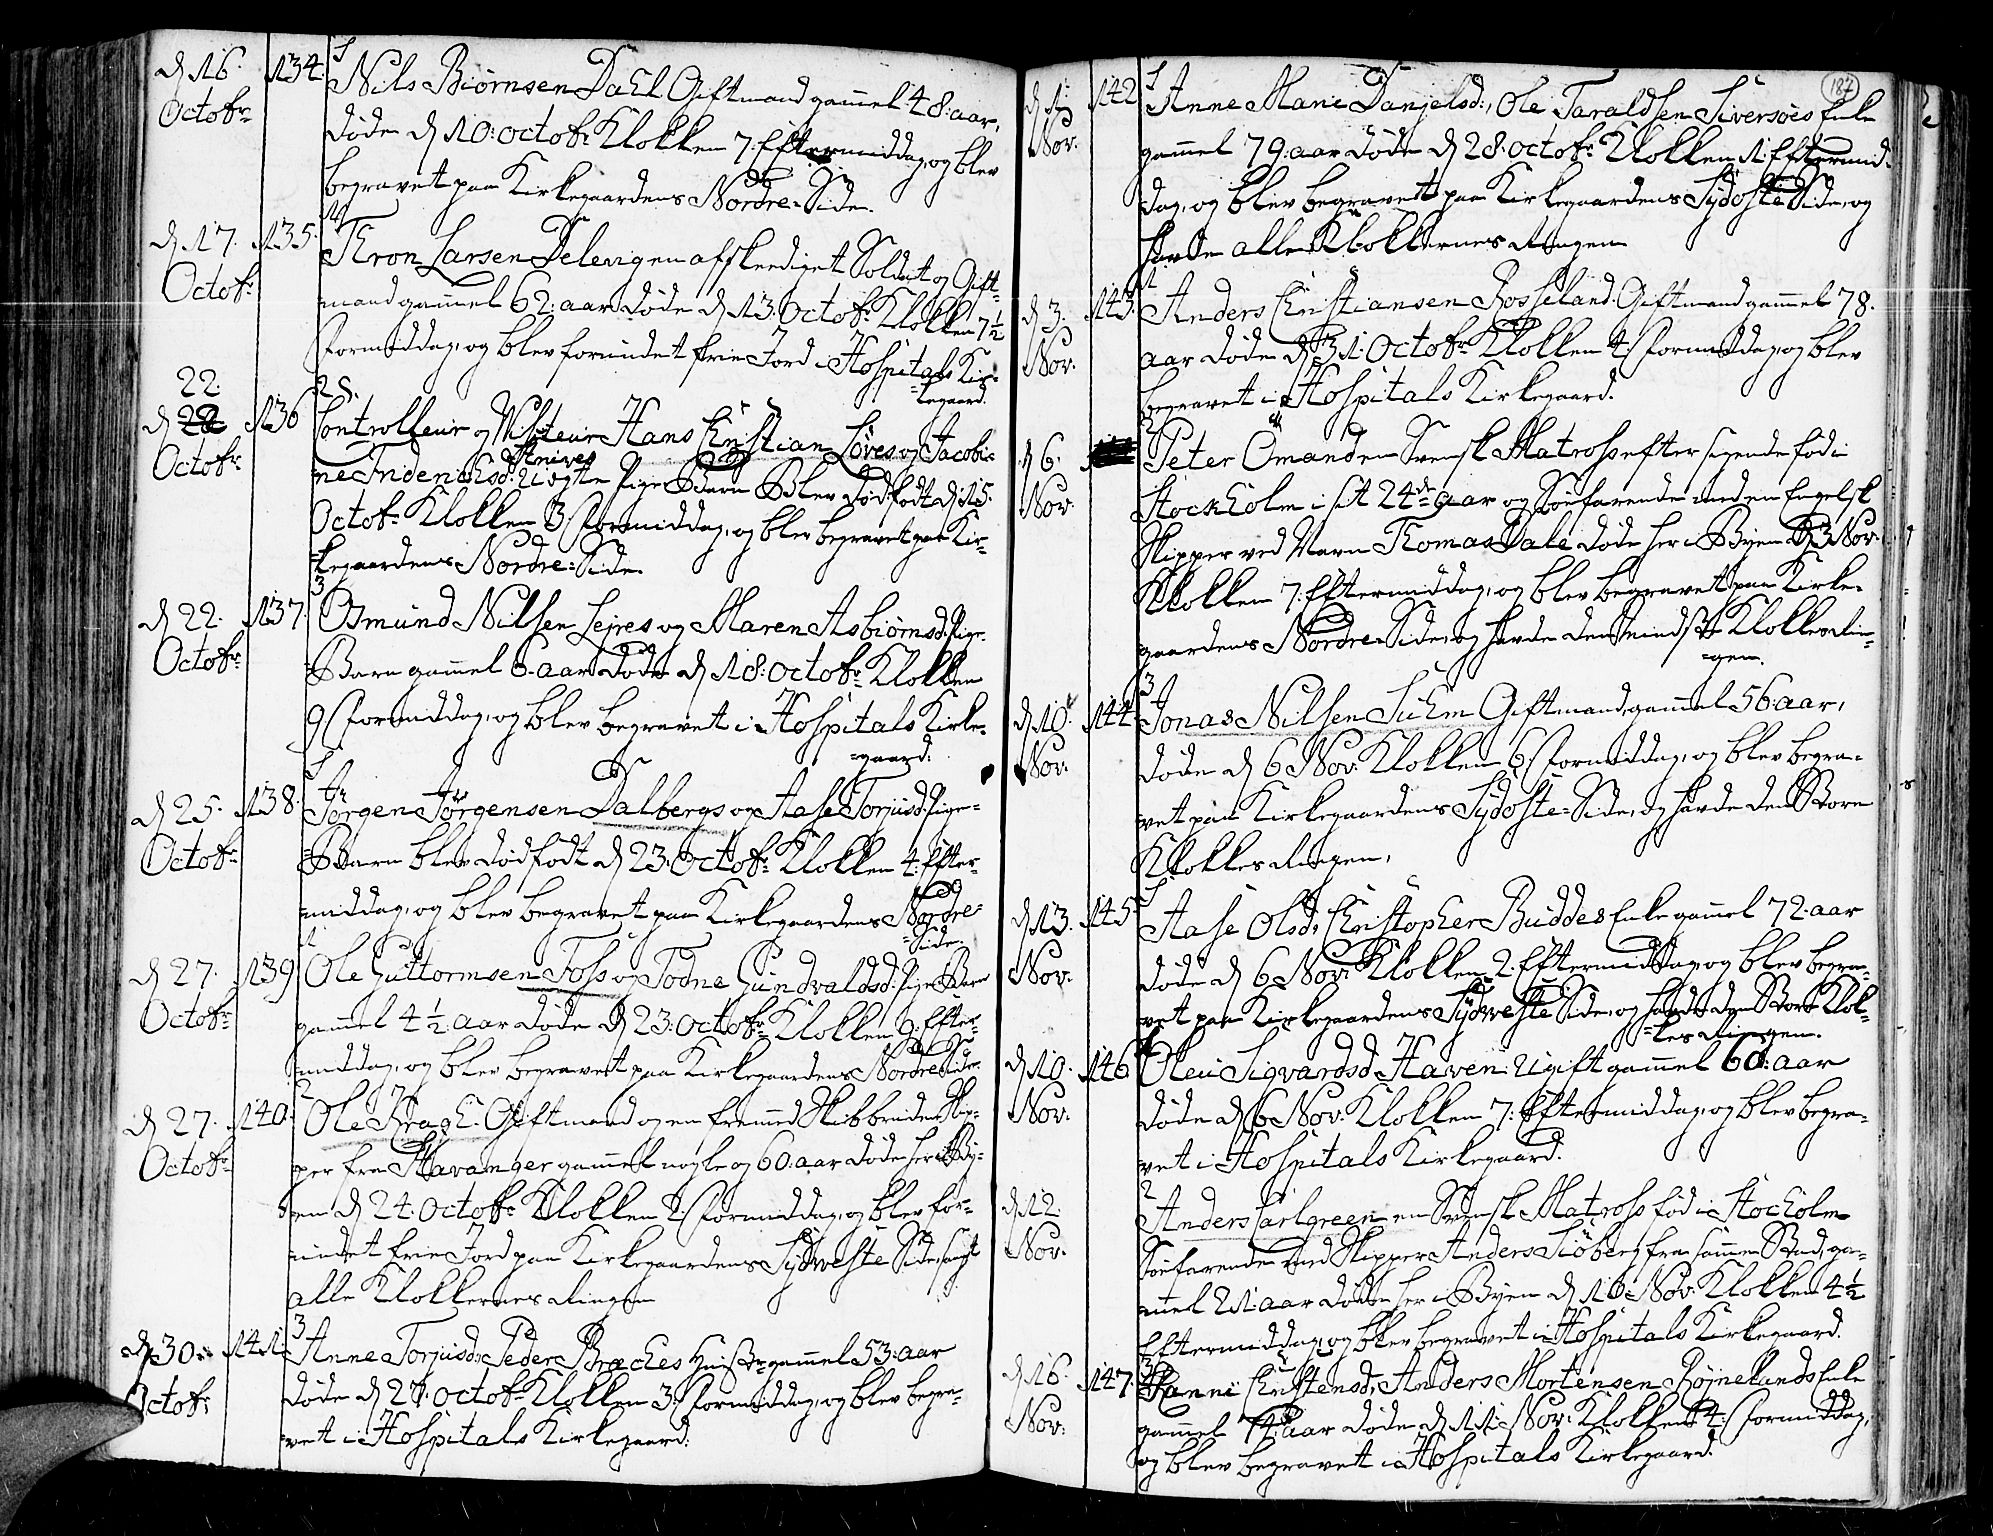 d 16. 134. Nils Biörnsen Dahl Giftmand gamel 48: aar,
Octobr døde d 10: Octobr Klokken 7: Eftermiddag, og blev
begravet paa Kirkegaardens Nordre=Side.
d 17. 135. Thron Larsen Delevigen afskeediget Soldat og Gift=
Octobr mand gamel 62: aar døde d 13: Octobr Klokken 7 1/2
formiddag, og blev forundet frie Jord i Hospitals Kir=
=kegaard.
22.
d 136 Controlleur og Visiteur Hans Christian Löves og Jacobi=
Octobr ne Uægte Pige Barn Blev dødfødt d 15.
Octobr Klokken 3 formiddag, og blev begravet paa Kir=
=kegaardens Nordre=Side.
d 22. 137. Osmund Nilsen Lejres og Maren Asbiörnsd: Pige=
Octobr =Barn gamel 6. aar døde d 18: Octobr Klokken
9 formiddag, og blev begravet i Hospitals Kirke=
=gaard.
d 25. 138. Jörgen Jörgensen Dalbergs og Aase Torjusd: Pige=
Octobr =Barn blev dødfødt d 23: Octobr Klokken 4: Efter=
=middag, og blev begravet paa Kirkegaardens Nordre=
=Side.
d 27. 139. Ole Guttormsen Foss og Todne Gundvaldsd: Pige Barn
Octobr gamel 4 1/2 aar døde d 23: Octobr Klokken 9: Efter=
=middag, og blev begravet paa Kirkegaardens Nordre Side.
d 27. 140. Ole Kragh. Giftmand og en fremmed Skibbruden Skip=
Octobr per fra Stavanger gamel nogle og 60: aar døde her i By=
en d 24: Octobr Klokken 2 formiddag, og blev for=
undet frie Jord paa Kirkegaardens Sydweste Side, samt
alle Klokkernes Ringen
d 30. 141. Anne Torjusd: Peder Braches gamel 53: aar
Octobr døde d 27: Octobr Klokken 3 formiddag, og blev begra=
vet i Hospitals Kirkegaard.
187
d 1. 142 Anne Marie Danielsd:, Ole Taraldsen Siversöes Enke
Nov. gamel 79: aar døde d 28: Octobr Klokken 1. Eftermid=
dag, og blev begravet paa Kirkegaardens Sydoste Side, og
havde alle Klokkernes Ringen
d 3. 143. Anders Christiansen Rosseland. Giftmand gamel 78.
Nov. aar døde d 31: Octobr Klokken 4 formiddag, og blev
begravet i Hospitals Kirkegaard.
d 6. Peter Ömand en Svensk Matros efter sigende fød i
Nov. Stockholm i sit 24de aar og Söefarende med en Engelsk
Skipper ved Navn Thomas Dale døde her i Byen d 3 Nov.
Klokken 7: Eftermiddag, og blev begravet paa Kirke=
gaardens Nordre Side, og havde den mindste Klokkes Rin=
=gen.
d 10. 144. Jonas Nilsen Suhm Giftmand, gamel 56: aar,
Nov. døde d 6 Nov: Klokken 6 formiddag, og blev begra=
vet paa Kirkegaardens Sydoste=Side, og havde den Store
Klokkes Ringen,
d 13. 145 Aase Olsd: Christopher Buddes Enke gamel 72: aar
Nov. døde d 6 Nov: Klokken 2. Eftermiddag, og blev begra=
vet paa Kirkegaardens Sydweste Side, og havde den Store Klok=
=kes Ringen.
d 10. 146. Oleu Sigvardsd: Haven: Ugift gamel 60: aar
Nov. døde d 6 Nov: Klokken 7: Eftermiddag, og blev begra=
vet i Hospitals Kirkegaard.
d 12. Anders Carlgreen en Svensk Matros fød i Stocholm
Nov. Söefarende med Skipper Anders Siöberg fra samme Stad, ga=
mel 21: aar døde her i Byen d 10: Nov: Klokken 4 1/2
Eftermiddag, og blev begravet i Hospitals Kirkegaard.
d 16. 147. Christensd: Anders Mortensen Röjnelands Enke
Nov. gamel 74: aar døde d 11: Nov: Klokken 4: formiddag,
og blev begravet i Hospitals Kirkegaard.